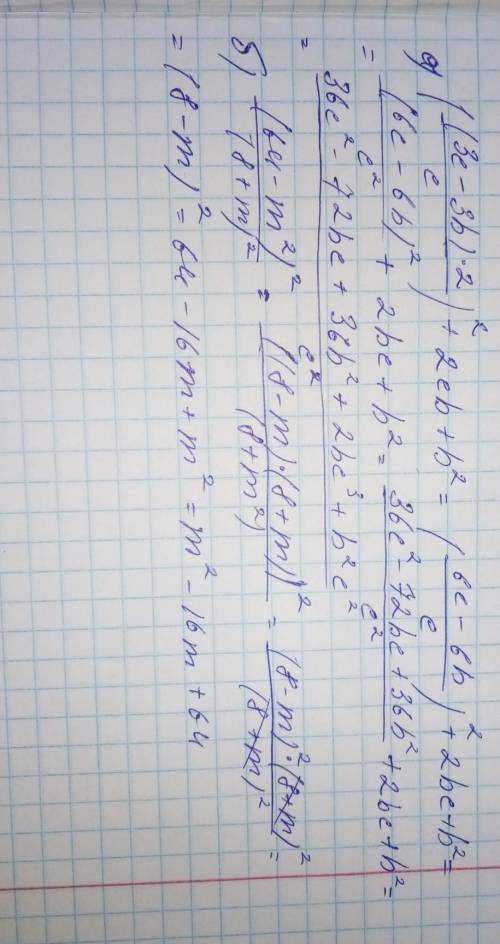 а) ((3c - 3b)·2 / c)² + 2cb + b² = (6c - 6b / c)² + 2bc + b² =
= (6c - 6b)² / c² + 2bc + b² = 36c² - 72bc + 36b² / c² + 2bc + b² =
= 36c² - 72bc + 36b² + 2bc³ + b²c² / c²
б) (64 - m²)² / (8 + m)² = ((8 - m)·(8 + m))² / (8 + m²) = (8 - m)²·(8 + m)² / (8 + m)² =
= (8 - m)² = 64 - 16m + m² = m² - 16m + 64